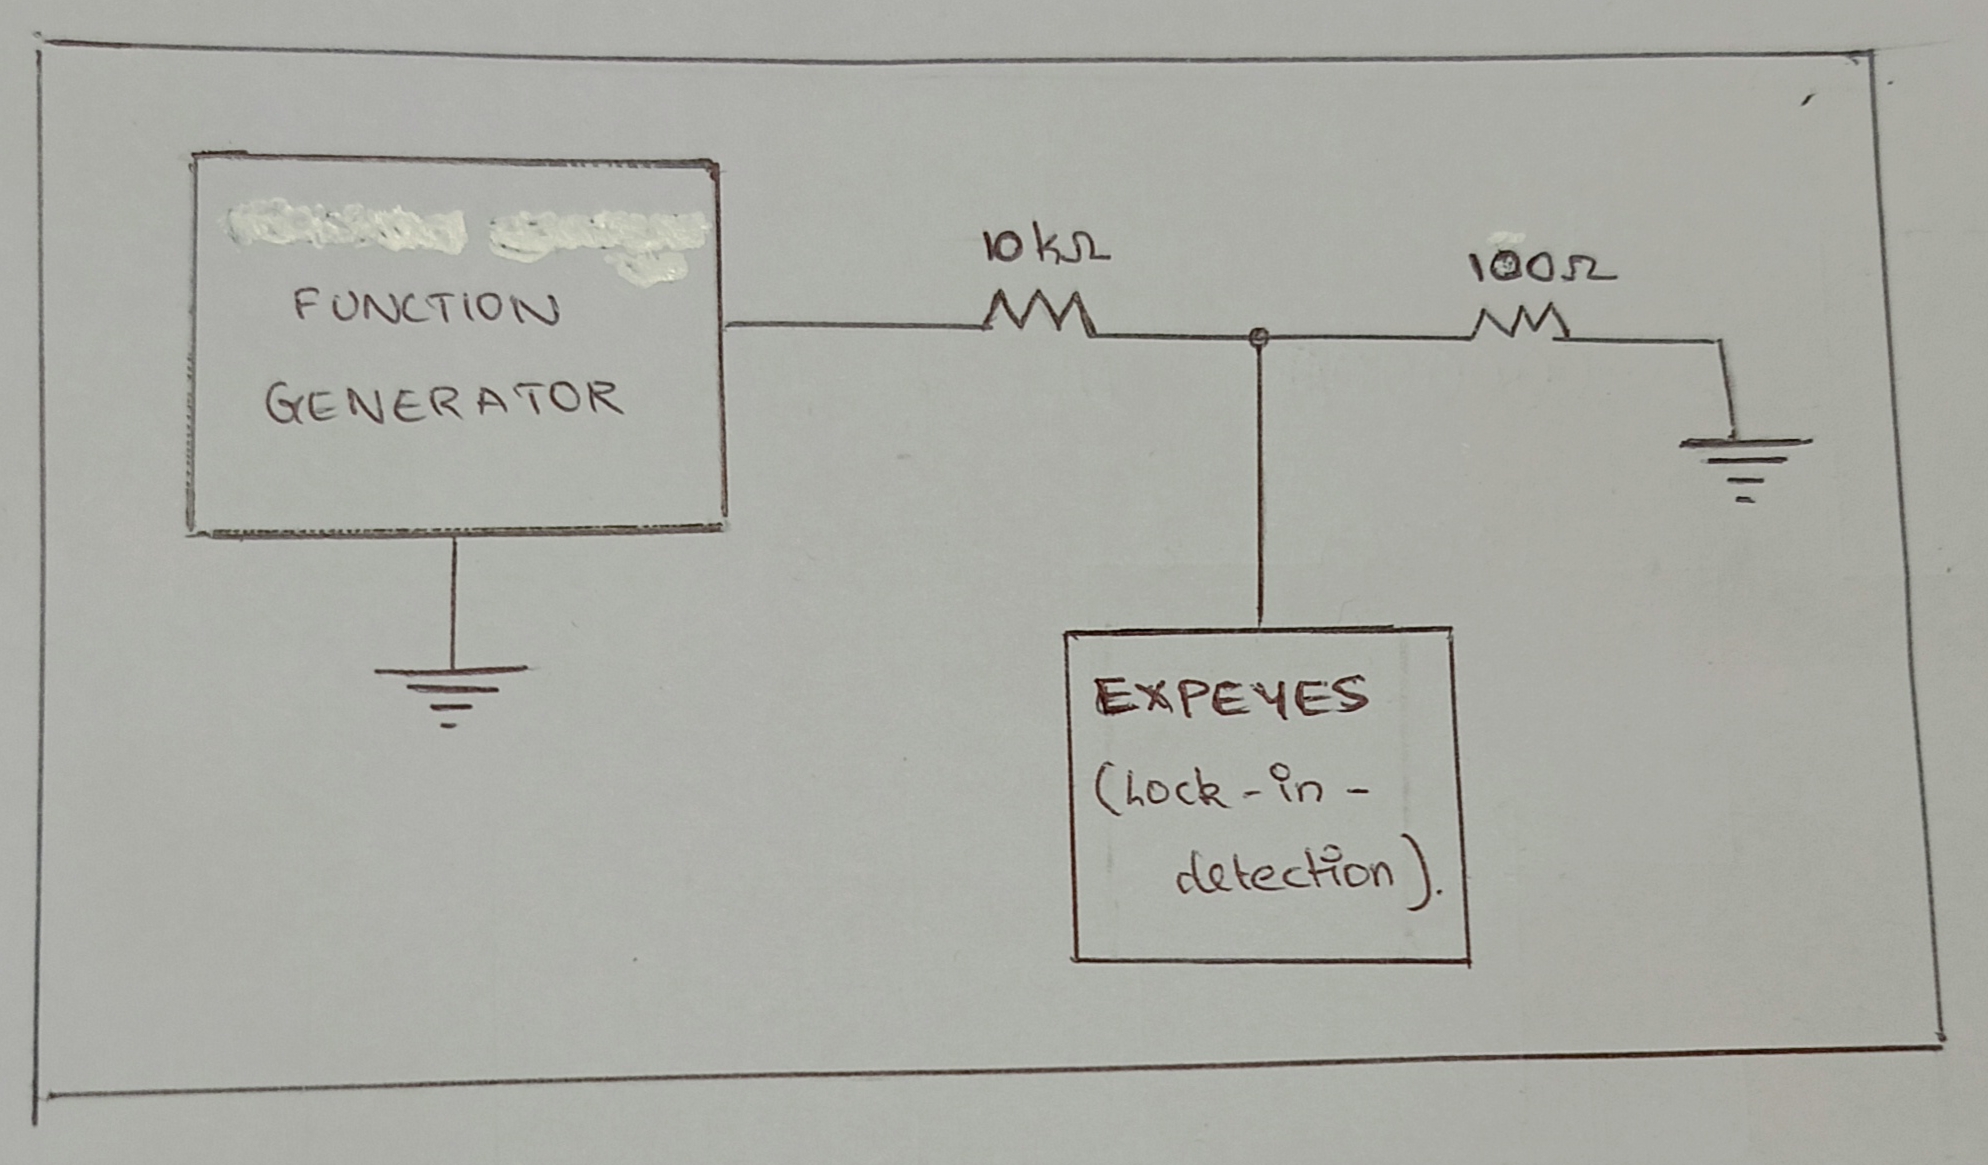 FUNCTION
GENERATOR
10kΩ
100Ω
EXPEYES
(Lock-in-
detection).